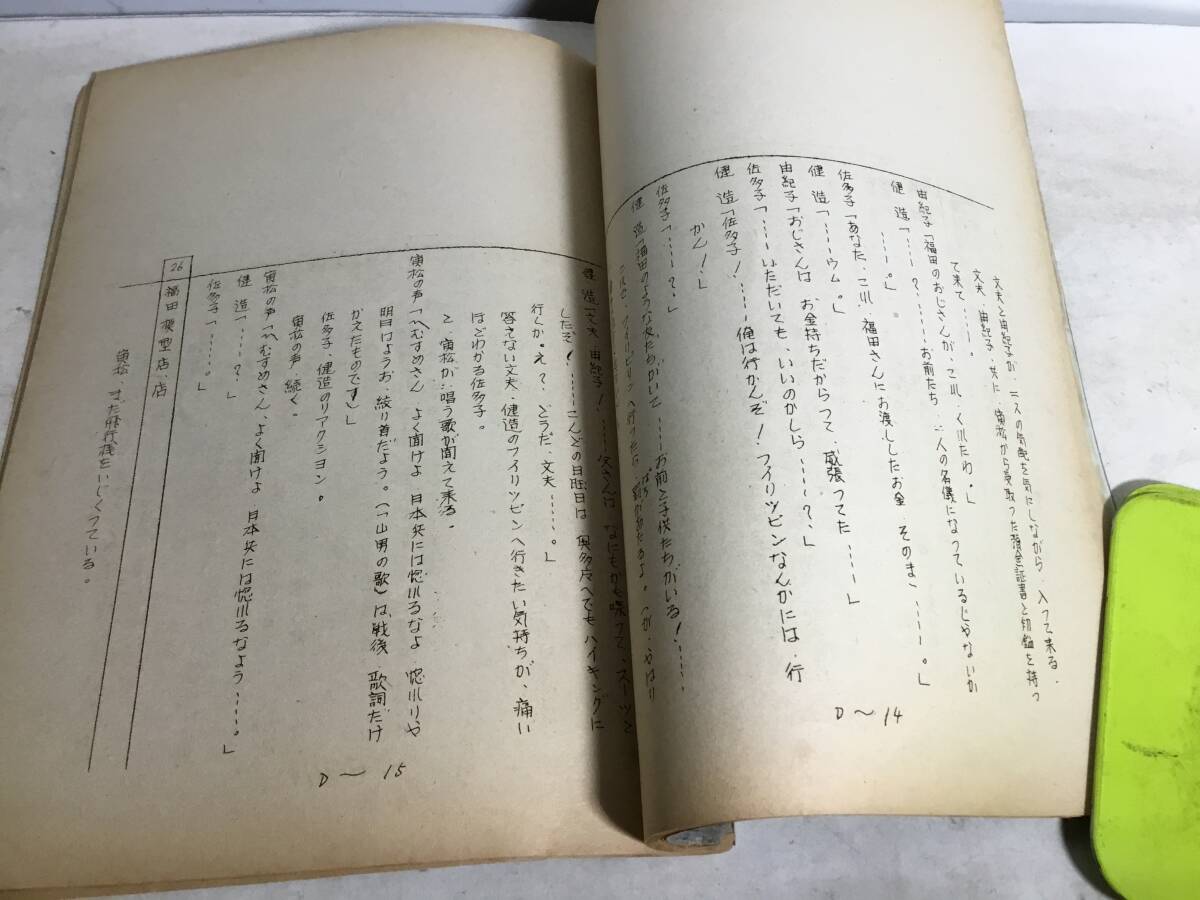 文夫と由紀子が、二人の気配を気にしながら、入って来る。
文夫、由紀子、共に、寅松から受取った預金証書と印鑑を持っ
て来て⋯⋯。
由紀子「福田のおじさんが、これ、くれたわ。」
健造「⋯⋯?⋯⋯お前たち、二人の名儀になっているじゃないか
⋯⋯。」
佐多子「あなた、これ、福田さんにお渡ししたお金、そのまゝ⋯⋯。」
健造「⋯⋯ウム。」
由紀子「おじさんは、お金持ちだからって、威張ってた⋯⋯」
佐多子「⋯⋯いただいても、いいのかしら⋯⋯?」
健造「佐多子!⋯⋯俺は行かんぞ!フイリッピンなんかには、行
かん!」
佐多子「⋯⋯?」
健造「福田のような友だちがいて⋯⋯お前と子供たちがいる!⋯⋯
D〜14
健造「文夫、由紀子!⋯⋯父さんは、なにもかも喋って、スーッと
したぞ!⋯⋯こんどの日曜日は、奥多摩へでも、ハイキングに
行くか。え?、どうだ、文夫⋯⋯。」
答えない文夫。健造のフイリッピンへ行きたい気持ちが、痛い
ほどわかる佐多子。
と、寅松が唱う歌が聞えて来る。
寅松の声「〽むすめさん よく聞けよ 日本兵には惚れるなよ 惚れりゃ
明日はようお、絞り首だよう。(「山男の歌」は、戦後、歌詞だけ
かえたものです)」
佐多子、健造のリアクション。
寅松の声、続く。
寅松の声「〽むすめさん、よく聞けよ 日本兵には惚れるなよう⋯⋯。」
健造「⋯⋯?」
佐多子「⋯⋯。」
26 福田模型店、店
寅松、また飛行機をいじくっている。
D〜15